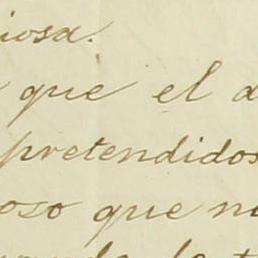 iosa.
que el
pretendidos
oso que
la